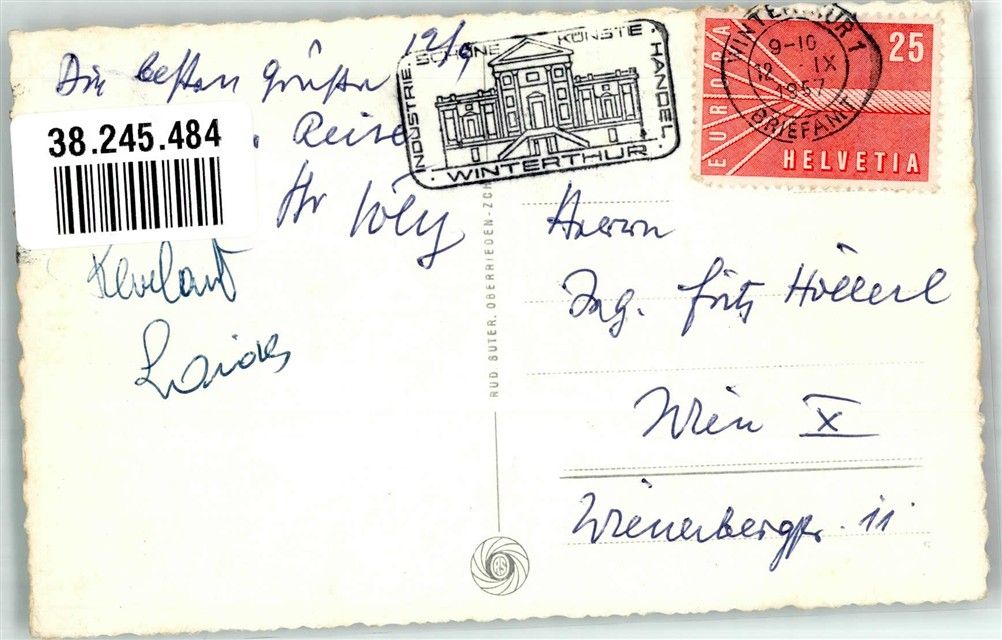 12/9
Die besten Grüße
. Reise
Ihr
38.245.484
INDUSTRIE · SCHÖNE KÜNSTE · HANDEL
· WINTERTHUR ·
WINTERTHUR 1
9-10
12. IX
1957
BRIEFAMT
EUROPA
25
HELVETIA
RUD SUTER, OBERRIEDEN-ZCH
Herrn
Ing. Fritz Höllerl
Wien X
Wienerbergstr. 11
RS